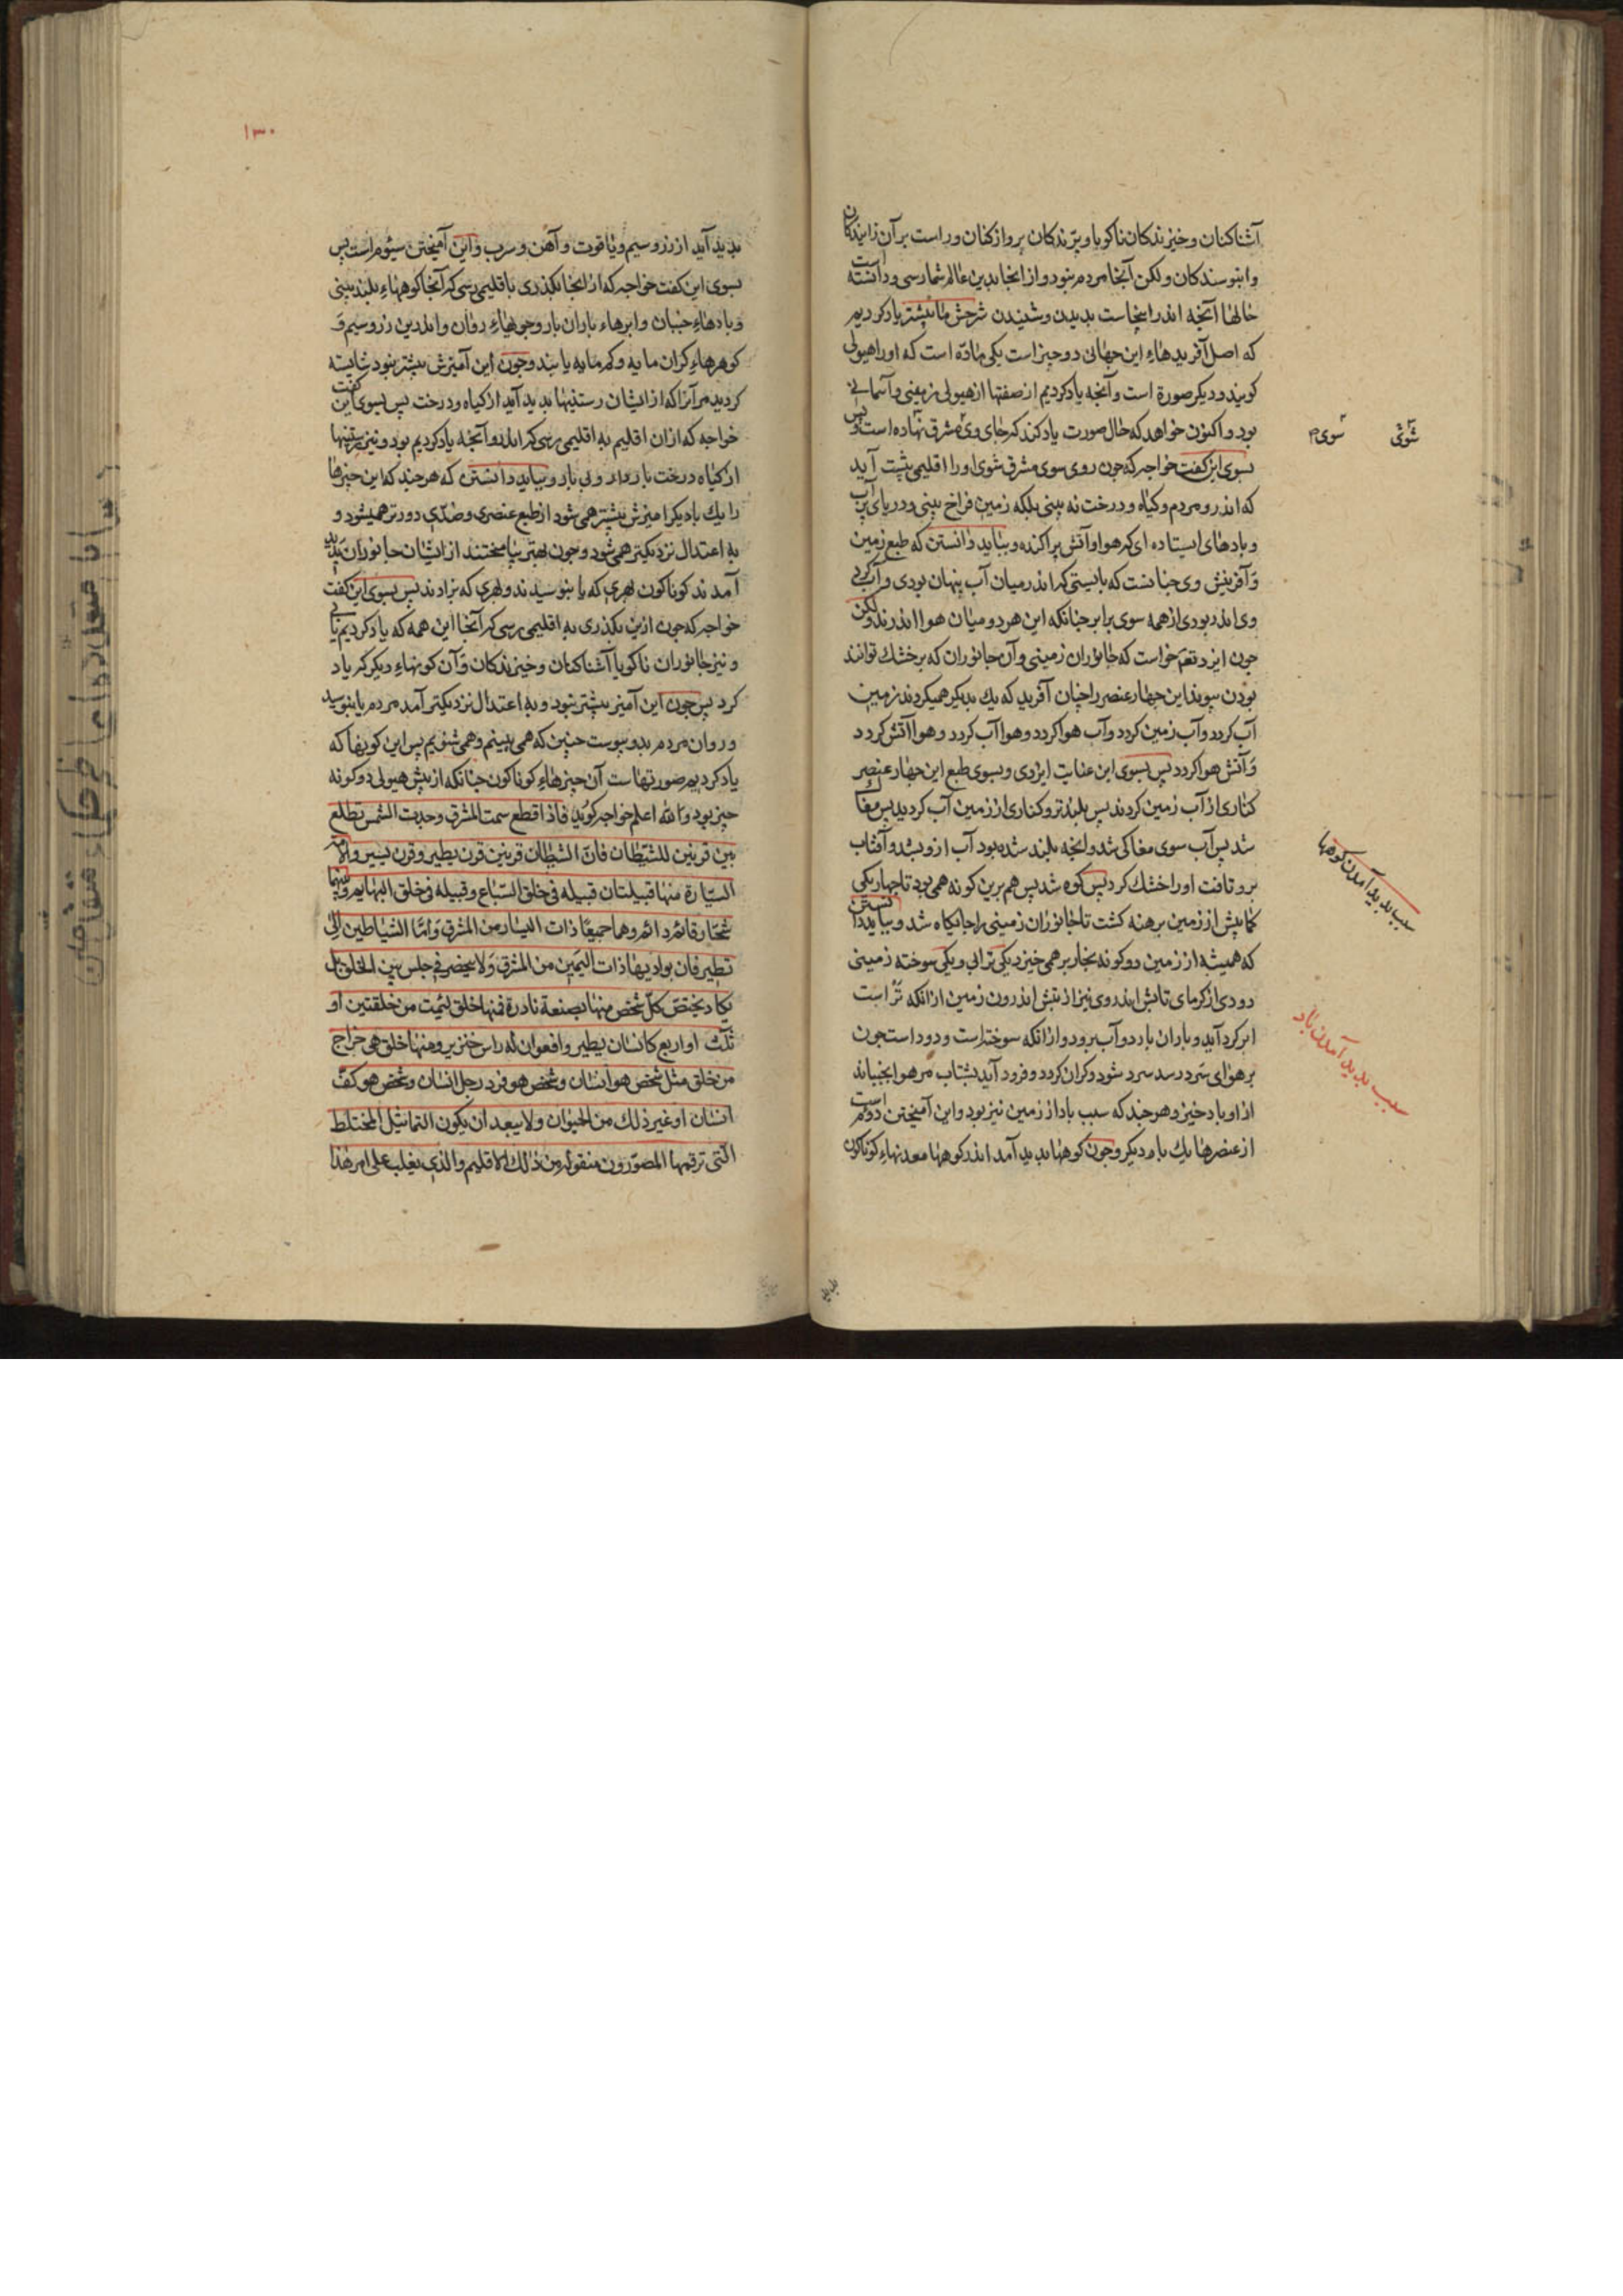 آشناکنان و خیزندکان ناکویا و پرندکان پروازکنان و راست بر آن زایندکان
و ابنوسندکان ولکن آنجا مردم نبود و از انجا بدین عالم شما رسی و دانسته است
حالها آنچه اندر اینجاست بدیدن و شنیدن شرحش ما پیشتر یاد کردیم
که اصل آفریدهاء این جهانی دو چیز است یکی مادّه است که او را هیولی
کویند و دیکر صورة است و آنچه یاد کردیم از صفتها از هیولی زمینی و آسمانی
بود و اکنون خواهد که حال صورت یاد کند که جای وی مشرق نهاده است پس
بسوی این کفت خواجه که چون روی سوی مشرق شوی او را اقلیمی پشت آید
که اندرو مردم و کیاه و درخت نه بینی بلکه زمین فراخ بینی و دریای پر آب
و بادهای ایستاده ای که هوا و آتش پراکنده و بباید دانستن که طبع زمین
و آفرینش وی چنانست که بایستی که اندر میان آب پنهان بودی و آب کرد
وی اندر بودی از همه سوی برابر چنانکه این هر دو میان هوا اندرند ولکن
چون ایزد تعم خواست که جانوران زمینی و آن جانوران که بر خشک توانند
بودن بپوند این چهار عنصر را چنان آفرید که یک بدیکر همیکردند زمین
آب کردد و آب زمین کردد و آب هوا کردد و هوا آب کردد و هوا آتش کردد
و آتش هوا کردد پس بسوی این عنایت ایزدی و بسوی طبع این چهار عنصر
کناری از آب زمین کردند پس بلندتر و کناری از زمین آب کردید پس مغاک
شد پس آب سوی مغاکی شد و انچه بلند شده بود آب ازو بشد و آفتاب
برو تافت او را خشک کرد پس کوه شد پس هم برین کونه همی بود تا چهار یکی
کما بیش از زمین برهنه کشت تا جانوران زمینی را جایکاه شد و بباید دانستن
که همیشه از زمین دو کونه بخار بر همی خیزد یکی ترابی و یکی سوخته زمینی
دودی از کرمای تابش اندر وی نیز از تبش اندرون زمین از انکه تر است
ابر کرد آید و باران بارد و آب برود و از انکه سوخته است و دود است چون
بر هوای سرد رسد سرد شود و کران کردد و فرود آید بشتاب مر هوا بجنباند
از او باد خیزد و هر چند که سبب باد از زمین نیز بود و این آمیختن دوم است
از عنصرها یک با دیکر و چون کوهها بدید آمد اندر کوهها معدنهاء کوناکون
شوی
سوی م
سبب بدید آمدن کوهها
سبب بدید آمدن باد
بدید
۱۳۰
بدید آید از زر و سیم و یاقوت و آهن و سرب و این آمیختن سیوم است پس
بسوی این کفت خواجه که از انجا بکذری با قلیمی رسی که آنجا کوههاء بلند بینی
و بادهاء جنبان و ابرهاء باران بار و جویهاء روان و اندرین زر و سیم و
کوهرهاء کران مایه و کم مایه یابند و چون این آمیزش بیشتر ببود شایسته
کردید مر آنرا که از ایشان رستنیها بدید آید از کیاه و درخت پس بسوی این کفت
خواجه که از ان اقلیم به اقلیمی رسی که اندرو آنچه یاد کردیم بود و نیز رستنیها
از کیاه درخت باردار و بی بار و بباید دانستن که هر چند که این چیزها
را یک با دیکر آمیزش بیشتر همی شود از طبع عنصری و ضدّی دورتر همیشود و
به اعتدال نزدیکتر همی شود و چون بهتر بیامیختند از ایشان جانوران بدید
آمدند کوناکون بهری که با بنوسیدند و بهری که بزادند پس بسوی این کفت
خواجه که چون ازین بکذری به اقلیمی رسی که آنجا این همه که یاد کردیم یابی
و نیز جانوران ناکویا آشناکنان و خیزندکان و آن کونهاء دیکر که یاد
کرد پس چون این آمیز بیشتر ببود و به اعتدال نزدیکتر آمد مردم یا بنوسید
و روان مردم بدو پیوست چنین که همی بینم و همی شنویم پس این کونها که
یاد کردیم صورتهاست آن چیزهاء کوناکون چنانکه از پیش هیولی دو کونه
چیز بود و الله اعلم خواجه کوید فاذا قطع سمت المشرق وجدت الشمس تطلع
بین قرنین للشیطان فان الشیطان قرنین قرن یطیر و قرن یسیر والامة
السیّارة منها قبیلتان قبیله فی خلق السّباع و قبیله فی خلق البهایم و بینهما
شجار قائم دائم و هما جمیعًا ذات الیسار من المشرق و امّا الشیاطین الّتی
تطیر فان بوادیها ذات الیمین من المشرق و لا یحضر فی جلس بین الخلق بل
یکاد یختص کلّ شخص منها بصنعة نادرة فمنها خلق لئمت من خلقتین او
ثلث او اربع کانسان یطیر و افعوان له راس خنزیر و منها خلق هی خداج
من خلق مثل شخص هو انسان و شخص هو فرد رجل انسان و شخص هو کفّ
انسان او غیر ذلک من الحیوان و لا یبعد ان یکون التماثیل المختلط
الّتی ترقمها المصوّرون منقولة من ذلک الاقلیم و الذی یغلب علی امر هذا